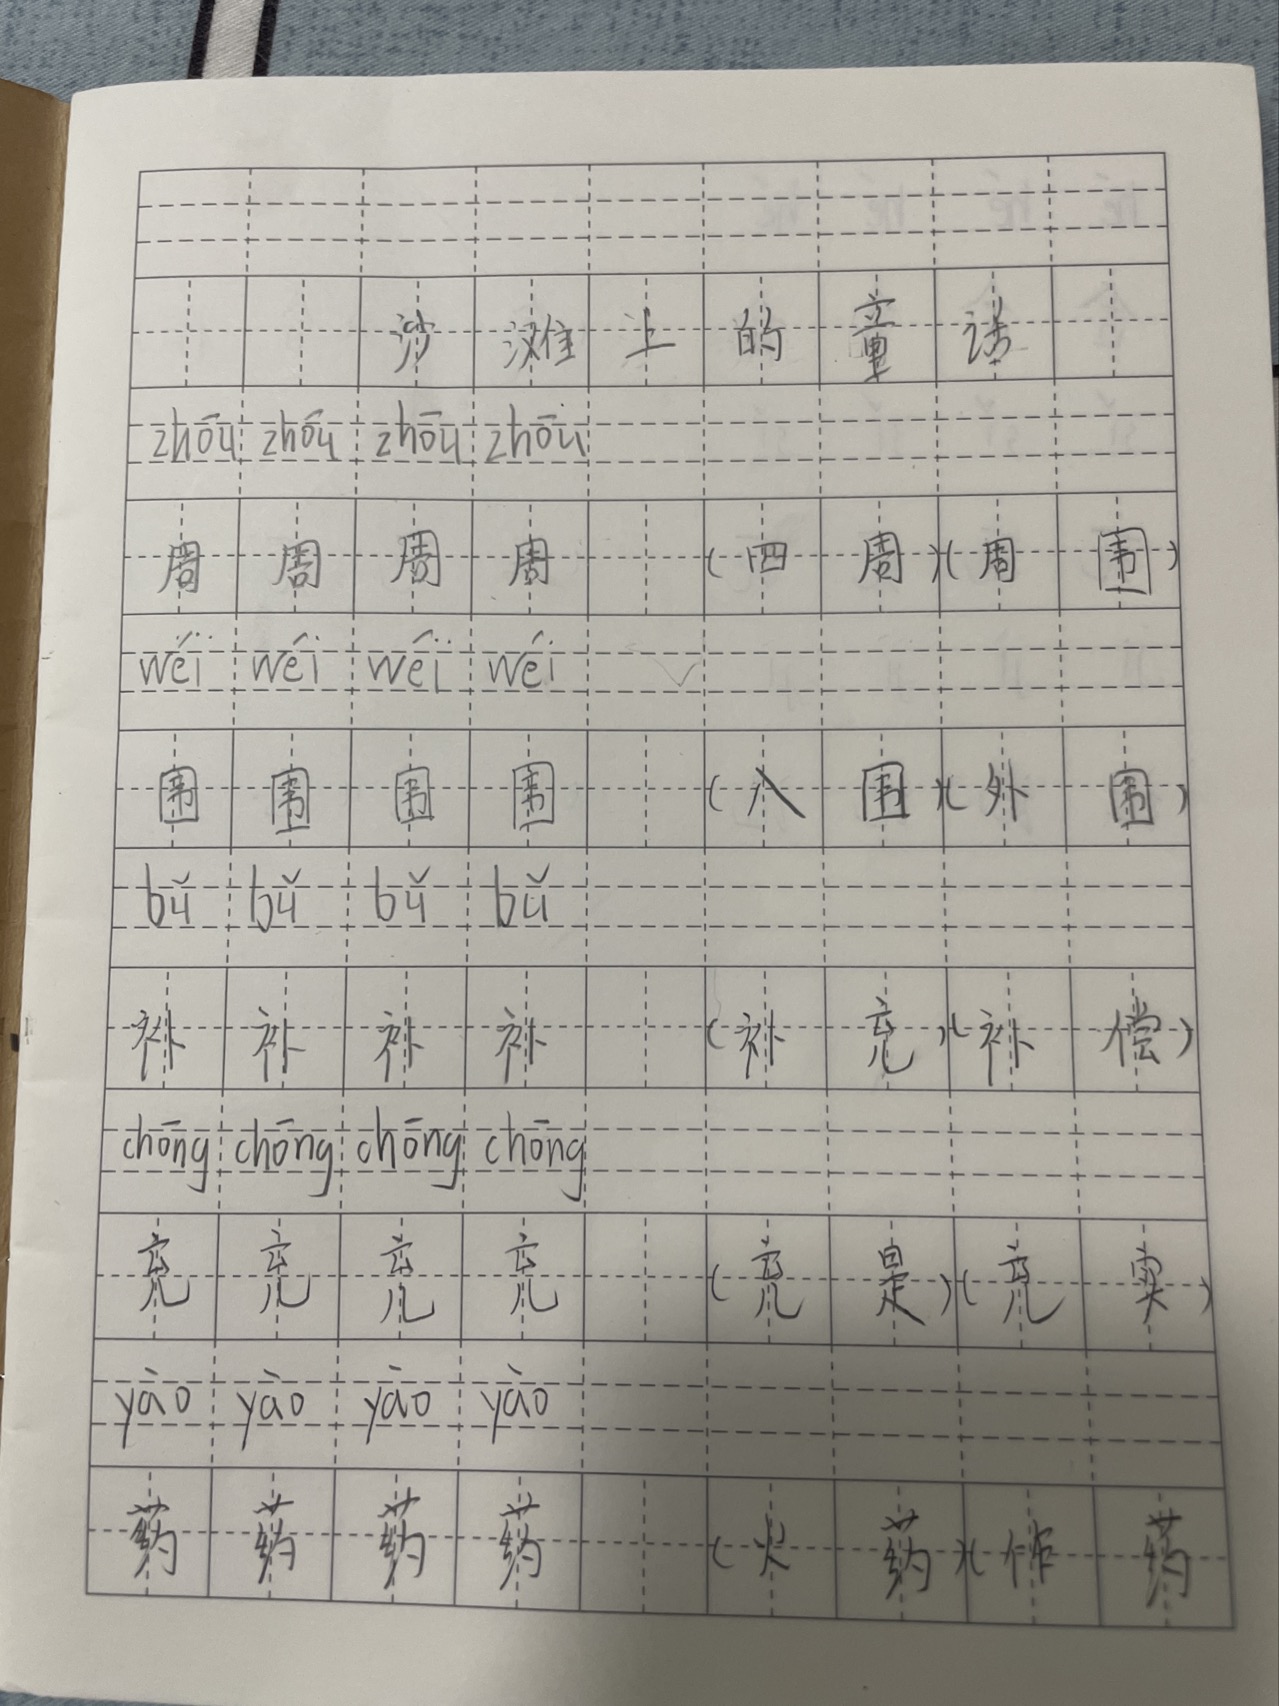 沙滩上的童话
zhōu zhōu zhōu zhōu
周 周 周 周 (四周)(周围)
wéi wéi wéi wéi
围 围 围 围 (八围)(外围)
bǔ bǔ bǔ bǔ
补 补 补 补 (补充)(补偿)
chōng chōng chōng chōng
充 充 充 充 (充足)(充实)
yào yào yào yào
药 药 药 药 (火药)(炸药)